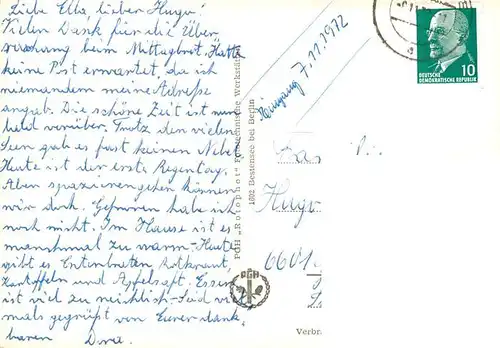 Liebe Elba, lieber Hugo!
Vielen Dank für die Über,
raschung beim Mittagbrot. Hatte
keine Post erwartet, da ich
niemandem meine Adresse
angab. Die schöne Zeit ist nun
bald vorüber. Trotz den vielen
Seen gab es fast keinen Nebel.
Heute ist der erste Regentag.
Aber spazierengehen können
wir doch. Gefroren habe ich
noch nicht. Im Hause ist es
manchmal zu warm. Heute
gibt es Entenbraten Rotkraut
Kartoffeln und Apfelsaft. Essen
ist viel zu reichlich. Seid viel,
mals gegrüßt von Eurer dank,
baren Dora.
PGH „Rotophot" Fototechnische Werkstätten
1602 Bestensee bei Berlin
Eingang 7.11.1972
DEUTSCHE
DEMOKRATISCHE REPUBLIK
10
Hugo
6601
PGH
Verbr